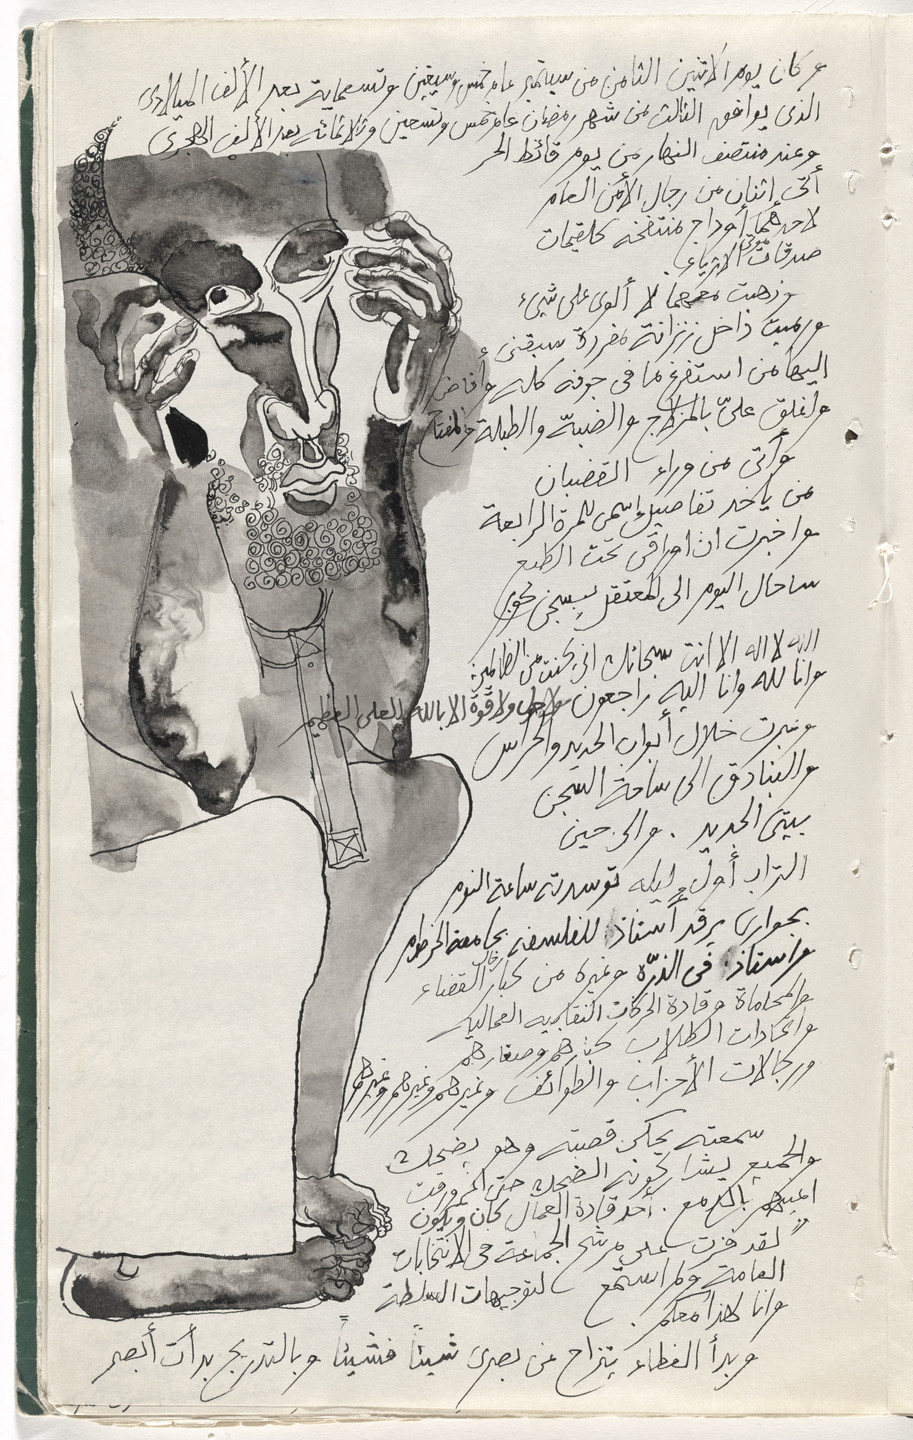 وكان يوم الاثنين الثامن من سبتمبر عام خمس وسبعين وتسعماية بعد الألف الميلادى
الذى يوافق الثالث من شهر رمضان عام خمس وتسعين وثلاثمائه بعد الألف الهجرى
وعند منتصف النهار من يوم قائظ الحر
أتى إثنان من رجال الأمن العام
لاحدهما أوداج منتفخه كلقيمات
صدقات موتى الاثرياء.
وذهبت معهما لا ألوى على شىء
ورميت داخل زنزانة مفردة سبقنى
اليها من استفرغ ما فى جوفه كله وأفاض
وأغلق علىّ بالمزلاج والضبّة والطبلة والمفتاح
وأتى من وراء القضبان
من يأخذ تفاصيل إسمى للمرة الرابعة
واخبرت ان اوراقى تحت الطبع
سأحال اليوم الى المعتقل بسجن كوبر
الله لا اله الا انت سبحانك انى كنت من الظالمين
وانا لله وانا اليه راجعون ولا حول ولا قوة الا بالله العلى العظيم
وعبرت خلال أبواب الحديد والحراس
والبنادق الى ساحة السجن
بيتى الجديد . والى حين
التراب أول ليله توسدته ساعة النوم
بجوارى يرقد أستاذ للفلسفه بجامعة الخرطوم
واستاذ فى الذرّه وغيره من كبار رجال القضاء
والمحاماة وقادة الحركات النقابيه العماليه
واتحادات الطلاب كبيرهم وصغارهم
ورجالات الأحزاب والطوائف وغيرهم وغيرهم وغيرهم
سمعته يحكى قصته وهو يضحك
والجميع يشاركونه الضحك حتى اغرورقت
اعينهم بالدمع . أحد قادة العمال كان ويقول
"لقد فزت على مرشح الجماعة فى الانتخابات
العامة ولم استمع لتوجيهات السلطة
وانا لهذا معكم.
وبدأ الغطاء ينزاح عن بصرى شيئاً فشيئاً وبالتدريج بدأت أبصر